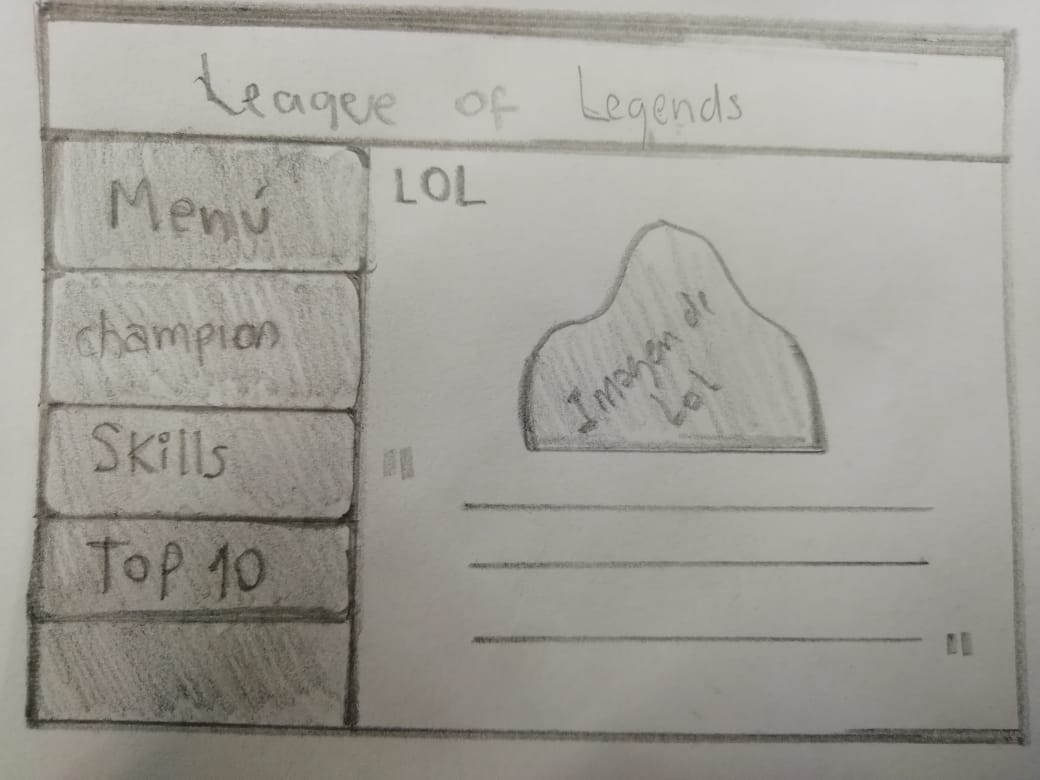 League of Legends
Menú
champion
Skills
Top 10
LOL
Imagen de
Lol
"
"